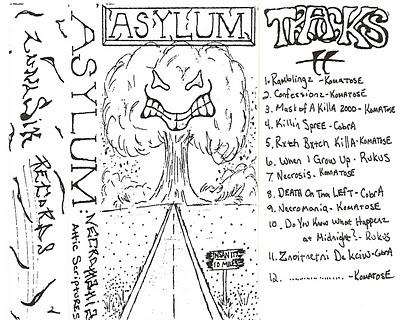 ASYLUM
INSANITY
10 MILES
ASYLUM:
Antic Scriptures
RECORDS
TRACKS
1. Ramblingz - KOMATOSE
2. Confessionz - KOMATOSE
3. Mask of A Killa 2000 - KOMATOSE
4. Killin Spree - CobrA
5. Rxtxh Bxtch KillA - KOMATOSE
6. When I Grow Up - RUKUS
7. Necrosis - KOMATOSE
8. DEATH ON Tha LEFT - CobrA
9. Necromaniq - KOMATOSE
10. Do You Know What Happenz
at Midnight? - RUKUS
11. De - CobrA
12. .................... - KOMATOSE